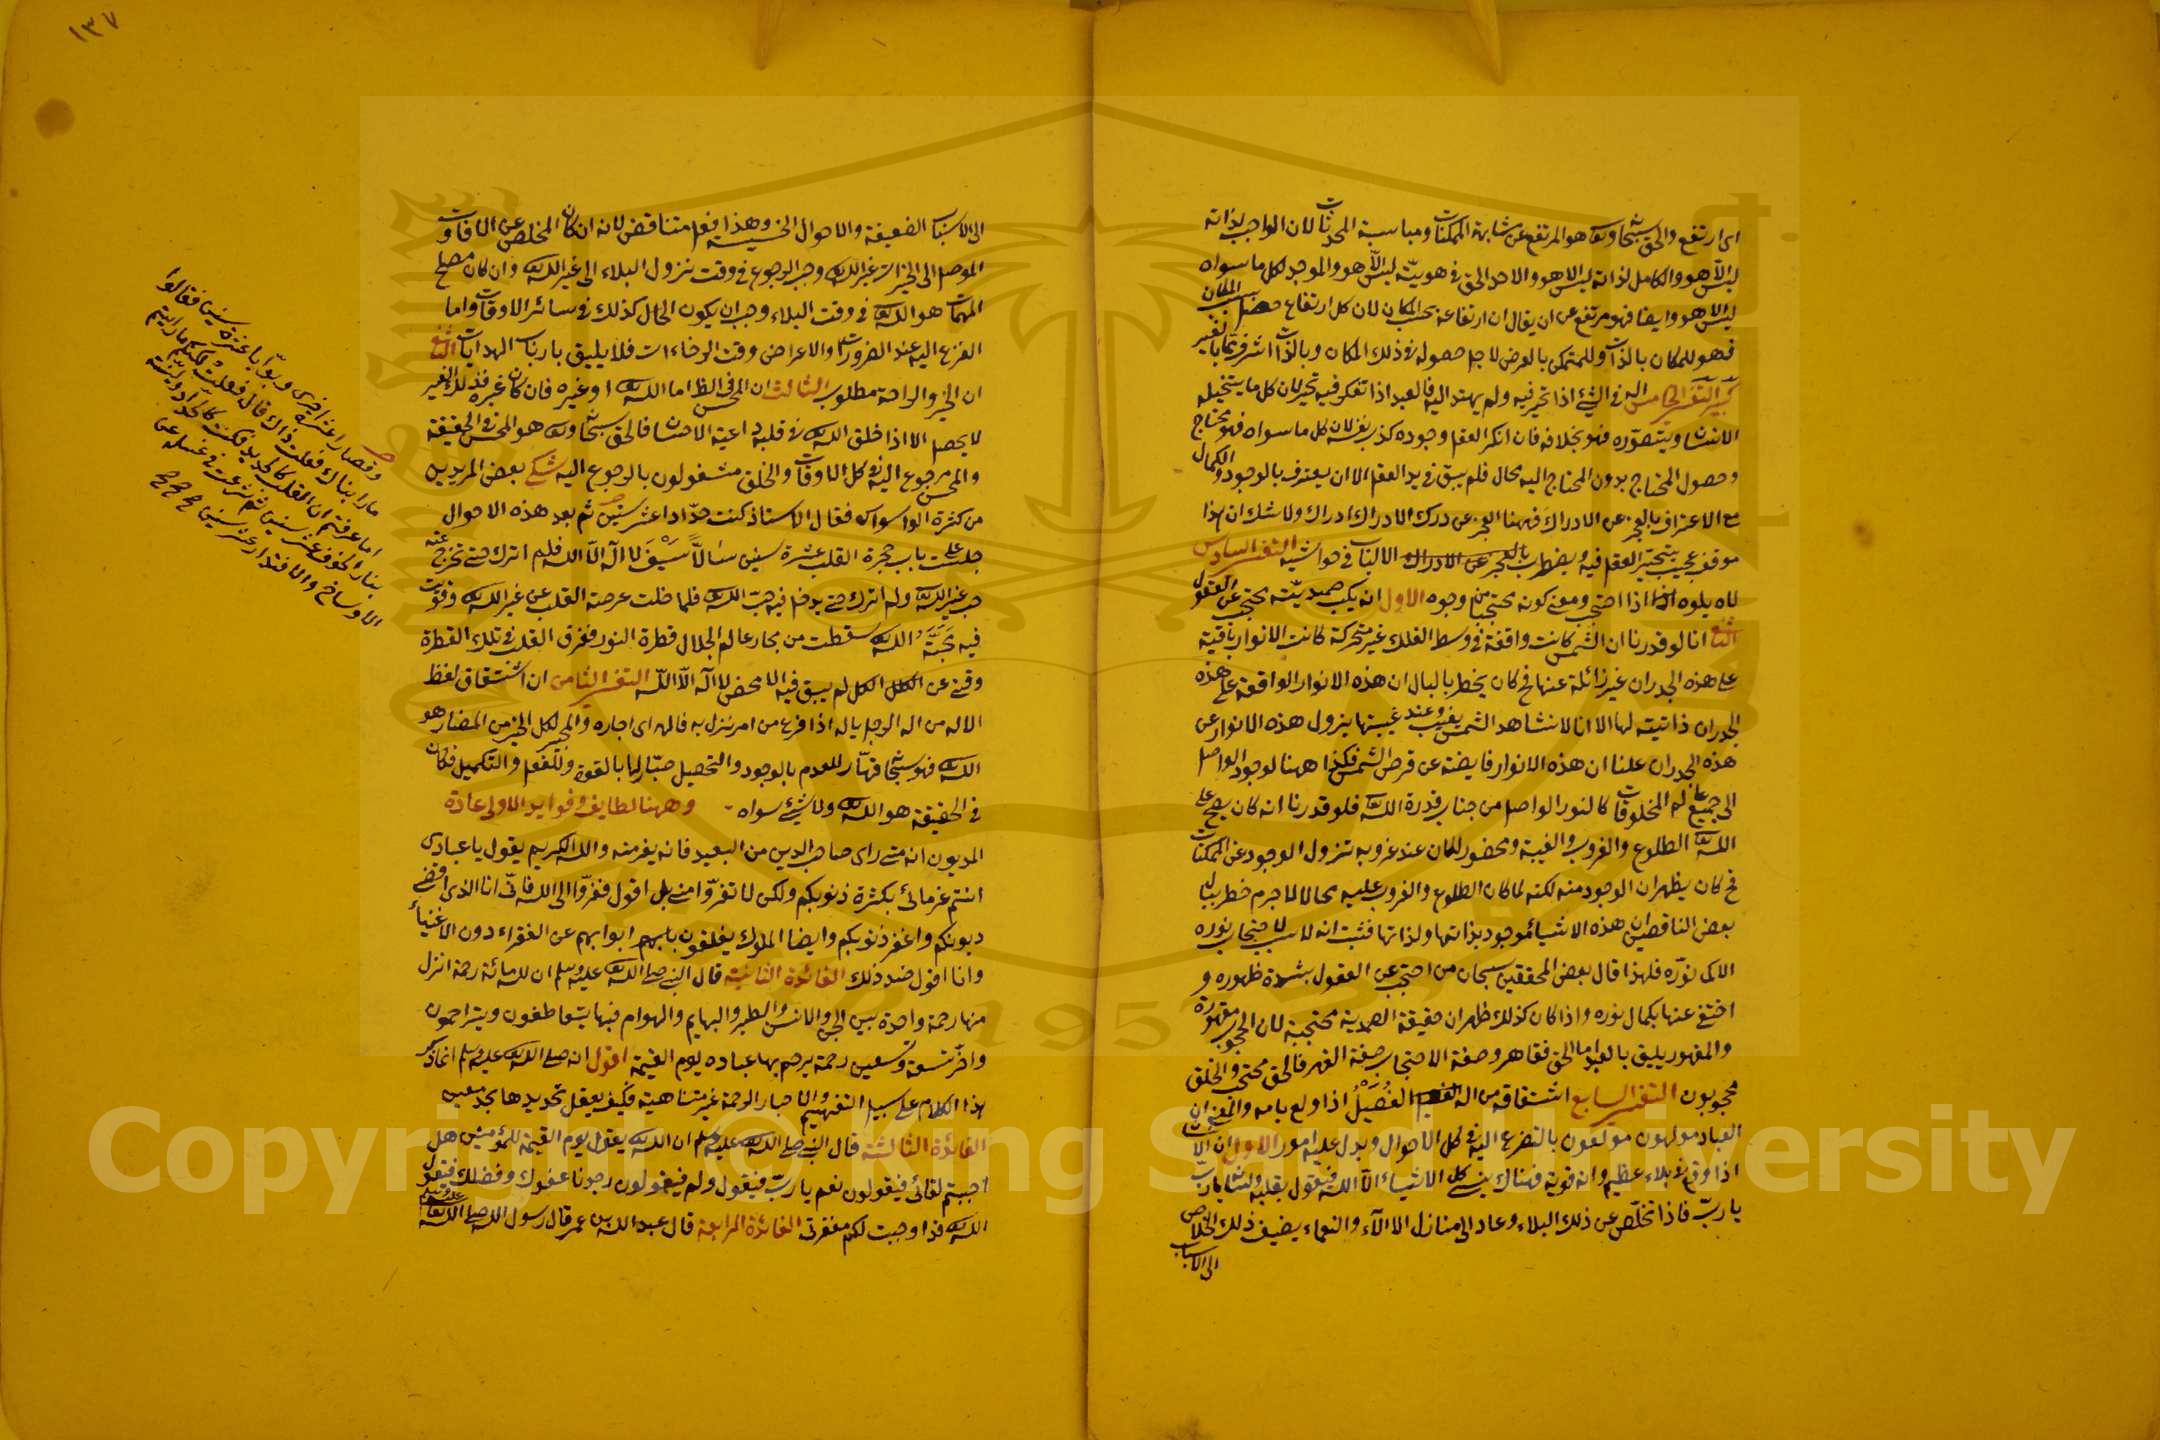 اى ارتفع والحق سبحانه وتعالى هو المرتفع عن مشابهة الممكنات ومناسبة المحدثات لان الواجب لذاته
ليس الا هو والكامل لذاته ليس الا هو والاحد الحق فى هويته ليس الا هو والموجد لكل ما سواه
ليس الا هو وايضا فهو مرتفع عن ان يقال ان ارتفاعه بحسب المكان لان كل ارتفاع حصل بسبب المكان
فهو للمكان بالذات وللمتمكن بالعرض لاجل حصوله فى ذلك المكان وبالذات اشرف مما بالغير
التفسير الخامس من اله فى الشئ اذا تحير فيه ولم يهتد اليه فالعبد اذا تفكر فيه تحير لان كل ما يتخيله
الانسان ويتصوره فهو بخلافه فان انكر العقل وجوده كذبه نفسه لان كل ما سواه فهو محتاج
وحصول المحتاج بدون المحتاج اليه محال فلم يبق فى يد العقل الا ان يعترف بالوجود والكمال
مع الاعتراف بالعجز عن الادراك فههنا العجز عن درك الادراك ادراك ولا شك ان هذا
موقف عجيب يتحير العقل فيه ويضطرب الالباب فى حواشيه التفسير السادس
لاه يلوه اذا احتجب ومعنى كونه محتجبا من وجوه الاول انه بكنه صمديته محتجب عن العقول
الثانى انا لو قدرنا ان الشمس كانت واقفة فى وسط الفلك غير متحركة كانت الانوار باقية
على هذه الجدران غير زائلة عنها فح كان يخطر بالبال ان هذه الانوار الواقعة على هذه
الجدران ذاتية لها الا انا لا نشاهد الشمس يغيب وعند غيبتها يزول هذه الانوار عن
هذه الجدران علمنا ان هذه الانوار فايضة عن قرص الشمس فكذا ههنا لوجود الواصل
الى جميع عالم المخلوقات كالنور الواصل من جناب قدرة الله فلو قدرنا انه كان يصح على
الله الطلوع والغروب والغيبة والحضور لكان عند غروبه تزول الوجود عن الممكنات
فح كان يظهر ان الوجود منه لكنه لما كان الطلوع والغروب عليه محالا لا جرم خطر ببال
بعض الناقصين ان هذه الاشياء موجود بذاتها ولذاتها فثبت انه لا سبب لاحتجاب نوره
الا كمال نوره فلهذا قال بعض المحققين سبحان من احتجب عن العقول بشدة ظهوره و
اختفى عنها بكمال نوره واذا كان كذلك ظهر ان حقيقة الصمدية محتجبة لان المحجوب مقهور
والمقهور يليق بالعبد اما الحق فقاهر وصفة الاحتجاب صفة القهر فالحق محتجب والخلق
محجوبون التفسير السابع اشتقاقه من اله الفصيل اذا ولع بامه والمعنى ان
العباد مولهون مولعون بالتضرع اليه فى كل الاحوال ويدل عليه امور الاول ان الانسان
اذا وقع فى بلاء عظيم وافة قوية فهناك ينسى كل الاشياء الا الله فيقول بقلبه ولسانه يا رب
يا رب فاذا تخلص عن ذلك البلاء وعاد الى منازل الالاء والنعماء يضيف ذلك الخلاص
الى الاسباب
١٣٧
الى الاسباب الضعيفة والاحوال الخسيسة وهذا فعل متناقض لانه ان كان المخلص عن الافات و
الموصل الى الخيرات غير الله وجب الرجوع فى وقت نزول البلاء الى غير الله وان كان مصلح
المهمات هو الله فى وقت البلاء وجب ان يكون الحال كذلك فى سائر الاوقات واما
الفزع اليه عند الضرورات والاعراض وقت الرخاءات فلا يليق بارباب الهدايات الثانى
ان الخير والراحة مطلوب الثالث ان المحسن فى الظاهر اما الله او غيره فان كان غيره فذلك الغير
لا يحصل الا اذا خلق الله فى قلبه داعية الاحسان فالحق سبحانه وتعالى هو المحسن فى الحقيقة
والمحسن مرجوع اليه فى كل الاوقات والخلق مشغولون بالرجوع اليه شكى بعض المريدين
من كثرة الوسواس فقال الاستاذ كنت حدادا عشر سنين ثم بعد هذه الاحوال
جلست على باب حجرة القلب عشرة سنين سالا سيف لا اله الا الله فلم اترك حتى تخرج عنه
حب غير الله ولم اترك حتى يدخل فيه حب الله فلما خلت عرصة القلب عن غير الله وقويت
فيه محبة الله سقطت من بحار عالم الجلال قطرة النور فغرق القلب فى تلك القطرة
وفنى عن الكل الكل لم يبق فيه الا محض لا اله الا الله التفسير الثامن ان اشتقاق لفظ
الاله من اله الرجل ياله اذا فزع من امر نزل به فالهه اى اجاره والمجير لكل الخلق من المضار هو
الله فهو سبحانه قهار للعدم بالوجود والتحصيل جبار لها بالقوة وللفعل والتكميل فكان
فى الحقيقة هو الله ولا شئ سواه وههنا لطايف وفوايد الاولى عادة
المديون انه متى راى صاحب الدين من البعيد فانه يفر منه والله الكريم يقول يا عبادى
انتم غرمائى بكثرة ذنوبكم ولكن لا تفروا منى بل اقول ففروا الى الله فانى انا الذى اقضى
ديونكم واغفر ذنوبكم وايضا الملوك يغلقون ابوابهم عن الفقراء دون الاغنياء
وانا افعل ضد ذلك الفائدة الثانية قال النبى صلى الله عليه وسلم ان لله مائة رحمة انزل
منها رحمة واحدة بين الجن والانس والطير والبهايم والهوام فبها يتعاطفون ويتراحمون
واخر تسعة وتسعين رحمة يرحم بها عباده يوم القيمة اقول انه صلى الله عليه وسلم انما ذكر
هذا الكلام على سبيل التفهيم والا فبحار الرحمة غير متناهية فكيف يعقل تحديدها بحد معين
الفائدة الثالثة قال النبى صلى الله عليه وسلم ان الله يقول يوم القيمة للمؤمنين هل
احببتم لقائى فيقولون نعم يا رب فيقول ولم فيقولون رجونا عفوك وفضلك فيقول
الله قد اوجبت لكم مغفرتى الفائدة الرابعة قال عبد الله بن عمر قال رسول الله صلى الله تعالى عليه وسلم
وقصارا عشرة اخرى وبوابا عشرة سنين فقالوا
ما راينا ك فعلت ذاك قال فعلت ولكنكم ما رايتم
اما عرفتم ان القلب كالحديد فكنت كالحداد الينه
بنار الخوف عشر سنين ثم شرعت فى غسله عن
الاوساخ والاقذار عشر سنين